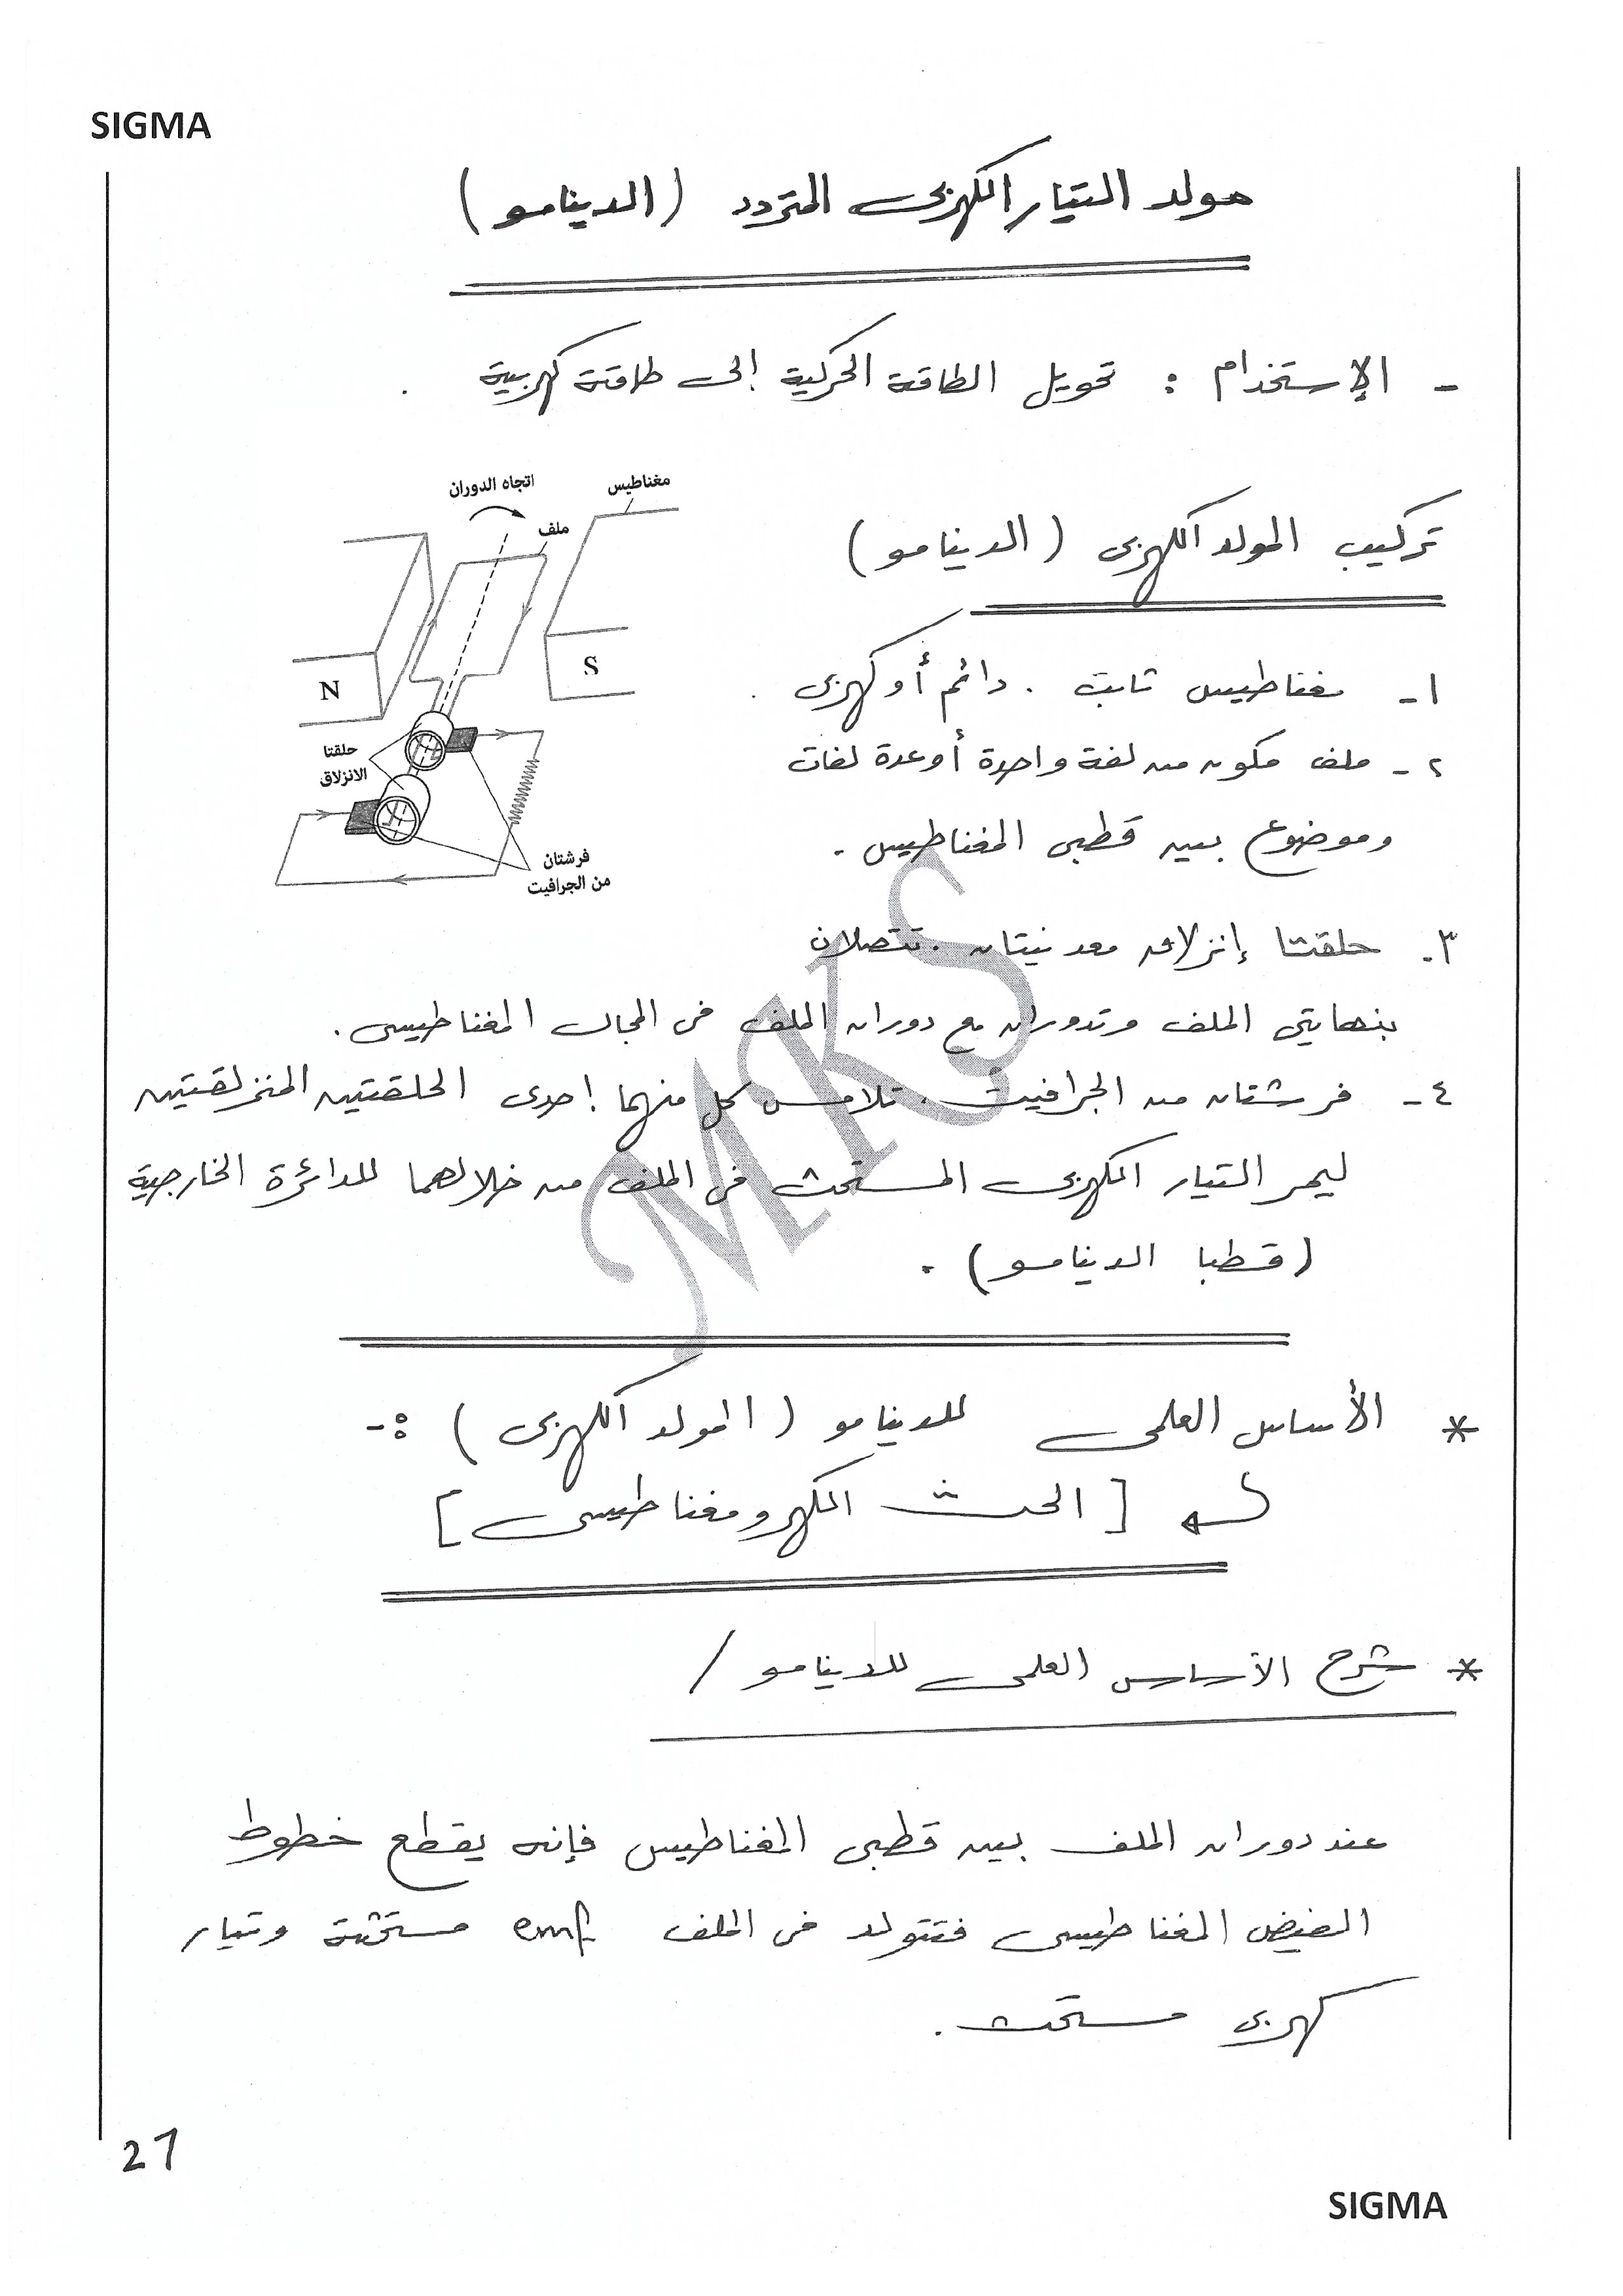 SIGMA
مولد التيار الكهربى المتردد (الدينامو)
- الإستخدام : تحويل الطاقة الحركية إلى طاقة كهربية .
اتجاه الدوران
مغناطيس
ملف
N
S
حلقتا
الانزلاق
فرشتان
من الجرافيت
تركيب المولد الكهربى (الدينامو)
١- مغناطيس ثابت . دائم أو كهربى .
٢- ملف مكون من لفة واحدة أو عدة لفات
وموضوع بين قطبى المغناطيس .
٣- حلقتا إنزلاق معدنيتان . تتصلان
بنهايتى الملف وتدوران مع دوران الملف فى المجال المغناطيسى .
٤- فرشتان من الجرافيت . تلامس كل منهما إحدى الحلقتين المنزلقتين
ليمر التيار الكهربى المستحث فى الملف من خلالهما للدائرة الخارجية
(قطبا الدينامو) .
* الأساس العلمى للدينامو (المولد الكهربى) :-
[الحث الكهرومغناطيسى]
* شرح الأساس العلمى للدينامو /
عند دوران الملف بين قطبى المغناطيس فإنه يقطع خطوط
الفيض المغناطيسى فتتولد فى الملف emf مستحثة وتيار
كهربى مستحث .
MKS
27
SIGMA